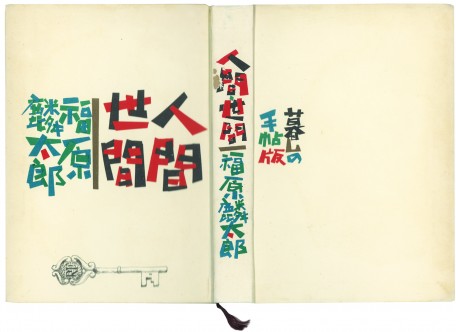 人間
世間
福原
麟太郎
人間世間
福原麟太郎
暮しの
手帖版